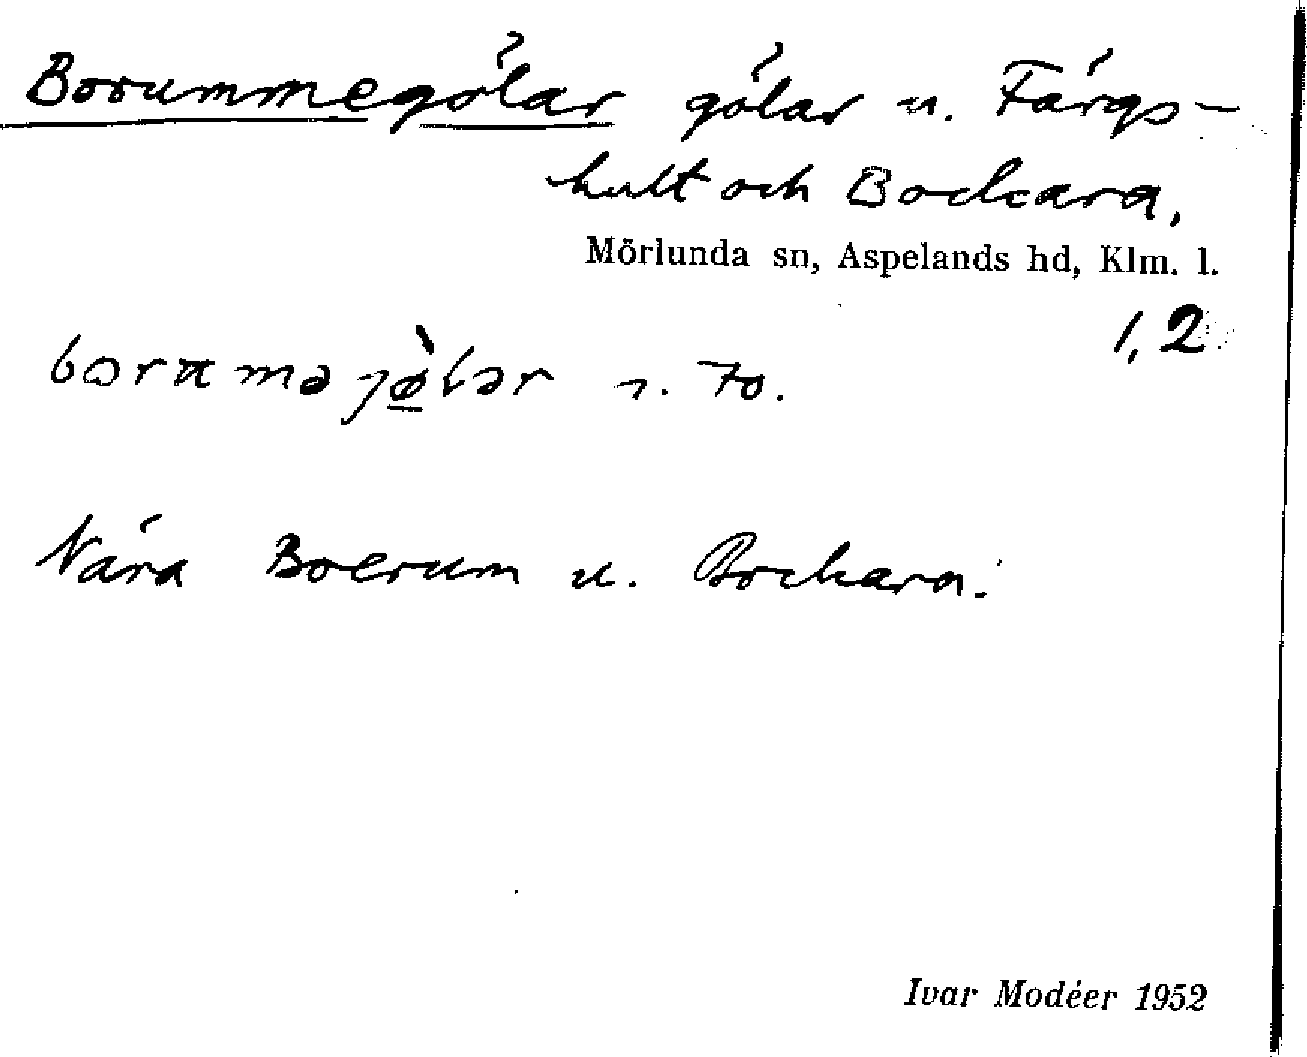 Borummegölar gölar u. Färgs-
hult och Bockara,
Mörlunda sn, Aspelands hd, Klm. l.
1,2
Nära Boerum u. Bockara.
Ivar Modéer 1952